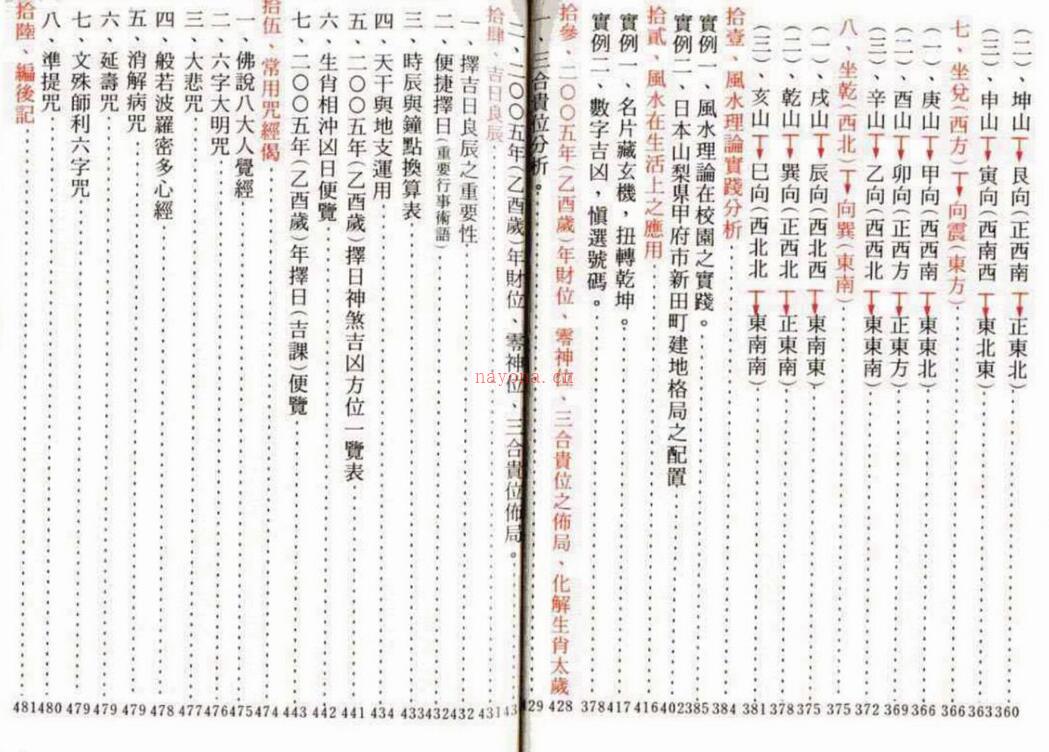 (二)、坤山→艮向(正西南→正東北)360
(三)、申山→寅向(西南西→東北東)363
七、坐兌(西方)→向震(東方)366
(一)、庚山→甲向(西西南→東東北)366
(二)、酉山→卯向(正西方→正東方)369
(三)、辛山→乙向(西西北→東東南)372
八、坐乾(西北)→向巽(東南)375
(一)、戌山→辰向(西北西→東南東)375
(二)、乾山→巽向(正西北→正東南)378
(三)、亥山→巳向(西北北→東南南)381
拾壹、風水理論實踐分析384
實例一、風水理論在校園之實踐。385
實例二、日本山梨県甲府市新田町建地格局之配置402
拾貳、風水在生活上之應用416
實例一、名片藏玄機，扭轉乾坤。417
實例二、數字吉凶，慎選號碼。378
拾參、二○○五年(乙酉歲)年財位、零神位、三合貴位之佈局、化解生肖太歲428
一、三合貴位分析。429
二、二○○五年(乙酉歲)年財位、零神位、三合貴位佈局。43
拾肆、吉日良辰431
一、擇吉日良辰之重要性432
二、便捷擇日(重要行事術語)432
三、時辰與鐘點換算表433
四、天干與地支運用434
五、二○○五年(乙酉歲)擇日神煞吉凶方位一覽表441
六、生肖相沖凶日便覽442
七、二○○五年(乙酉歲)年擇日(吉課)便覽443
拾伍、常用咒經偈474
一、佛說八大人覺經475
二、六字大明咒476
三、大悲咒477
四、般若波羅密多心經478
五、消解病咒479
六、延壽咒479
七、文殊師利六字咒479
八、準提咒480
拾陸、編後記481
nayona.cn